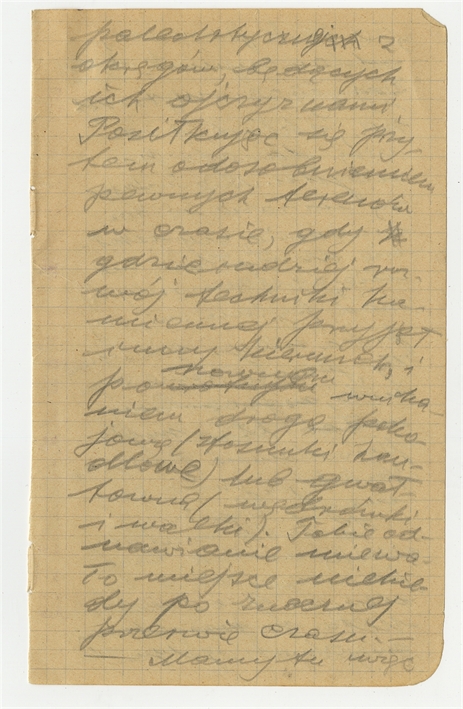 paleolitycznych z
okręgów, będących
ich ojczyznami
Posiłkując się przy-
tem odosobnieniem
pewnych terenów
w czasie, gdy
gdzieindziej roz-
wój techniki ka-
miennej przyjął
inny kierunek, i
ponownem wnika-
niem drogą poko-
jową (stosunki han-
dlowe) lub gwał-
towną (wędrówki
i walki). Takie od-
nawianie miewa-
ło miejsce niekie-
dy po znacznej
przerwie czasu.—
— Mamy tu więc